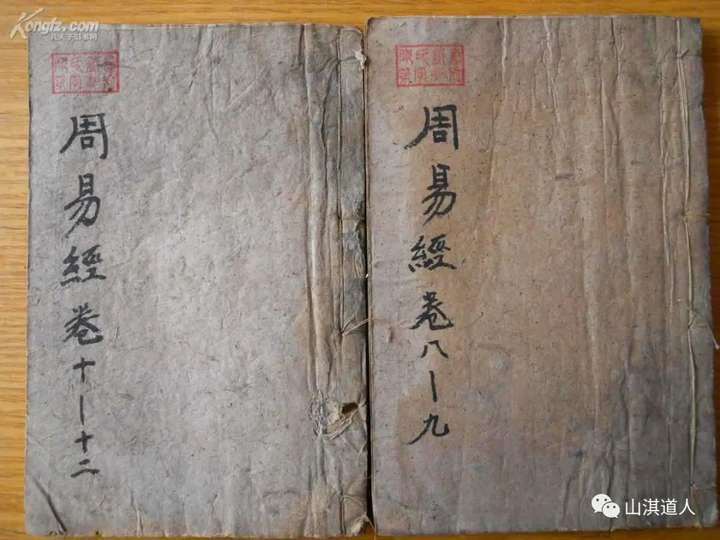 Kongfz.com
孔夫子旧书网
周易經卷十一十二
周易經卷八一九
山淇道人